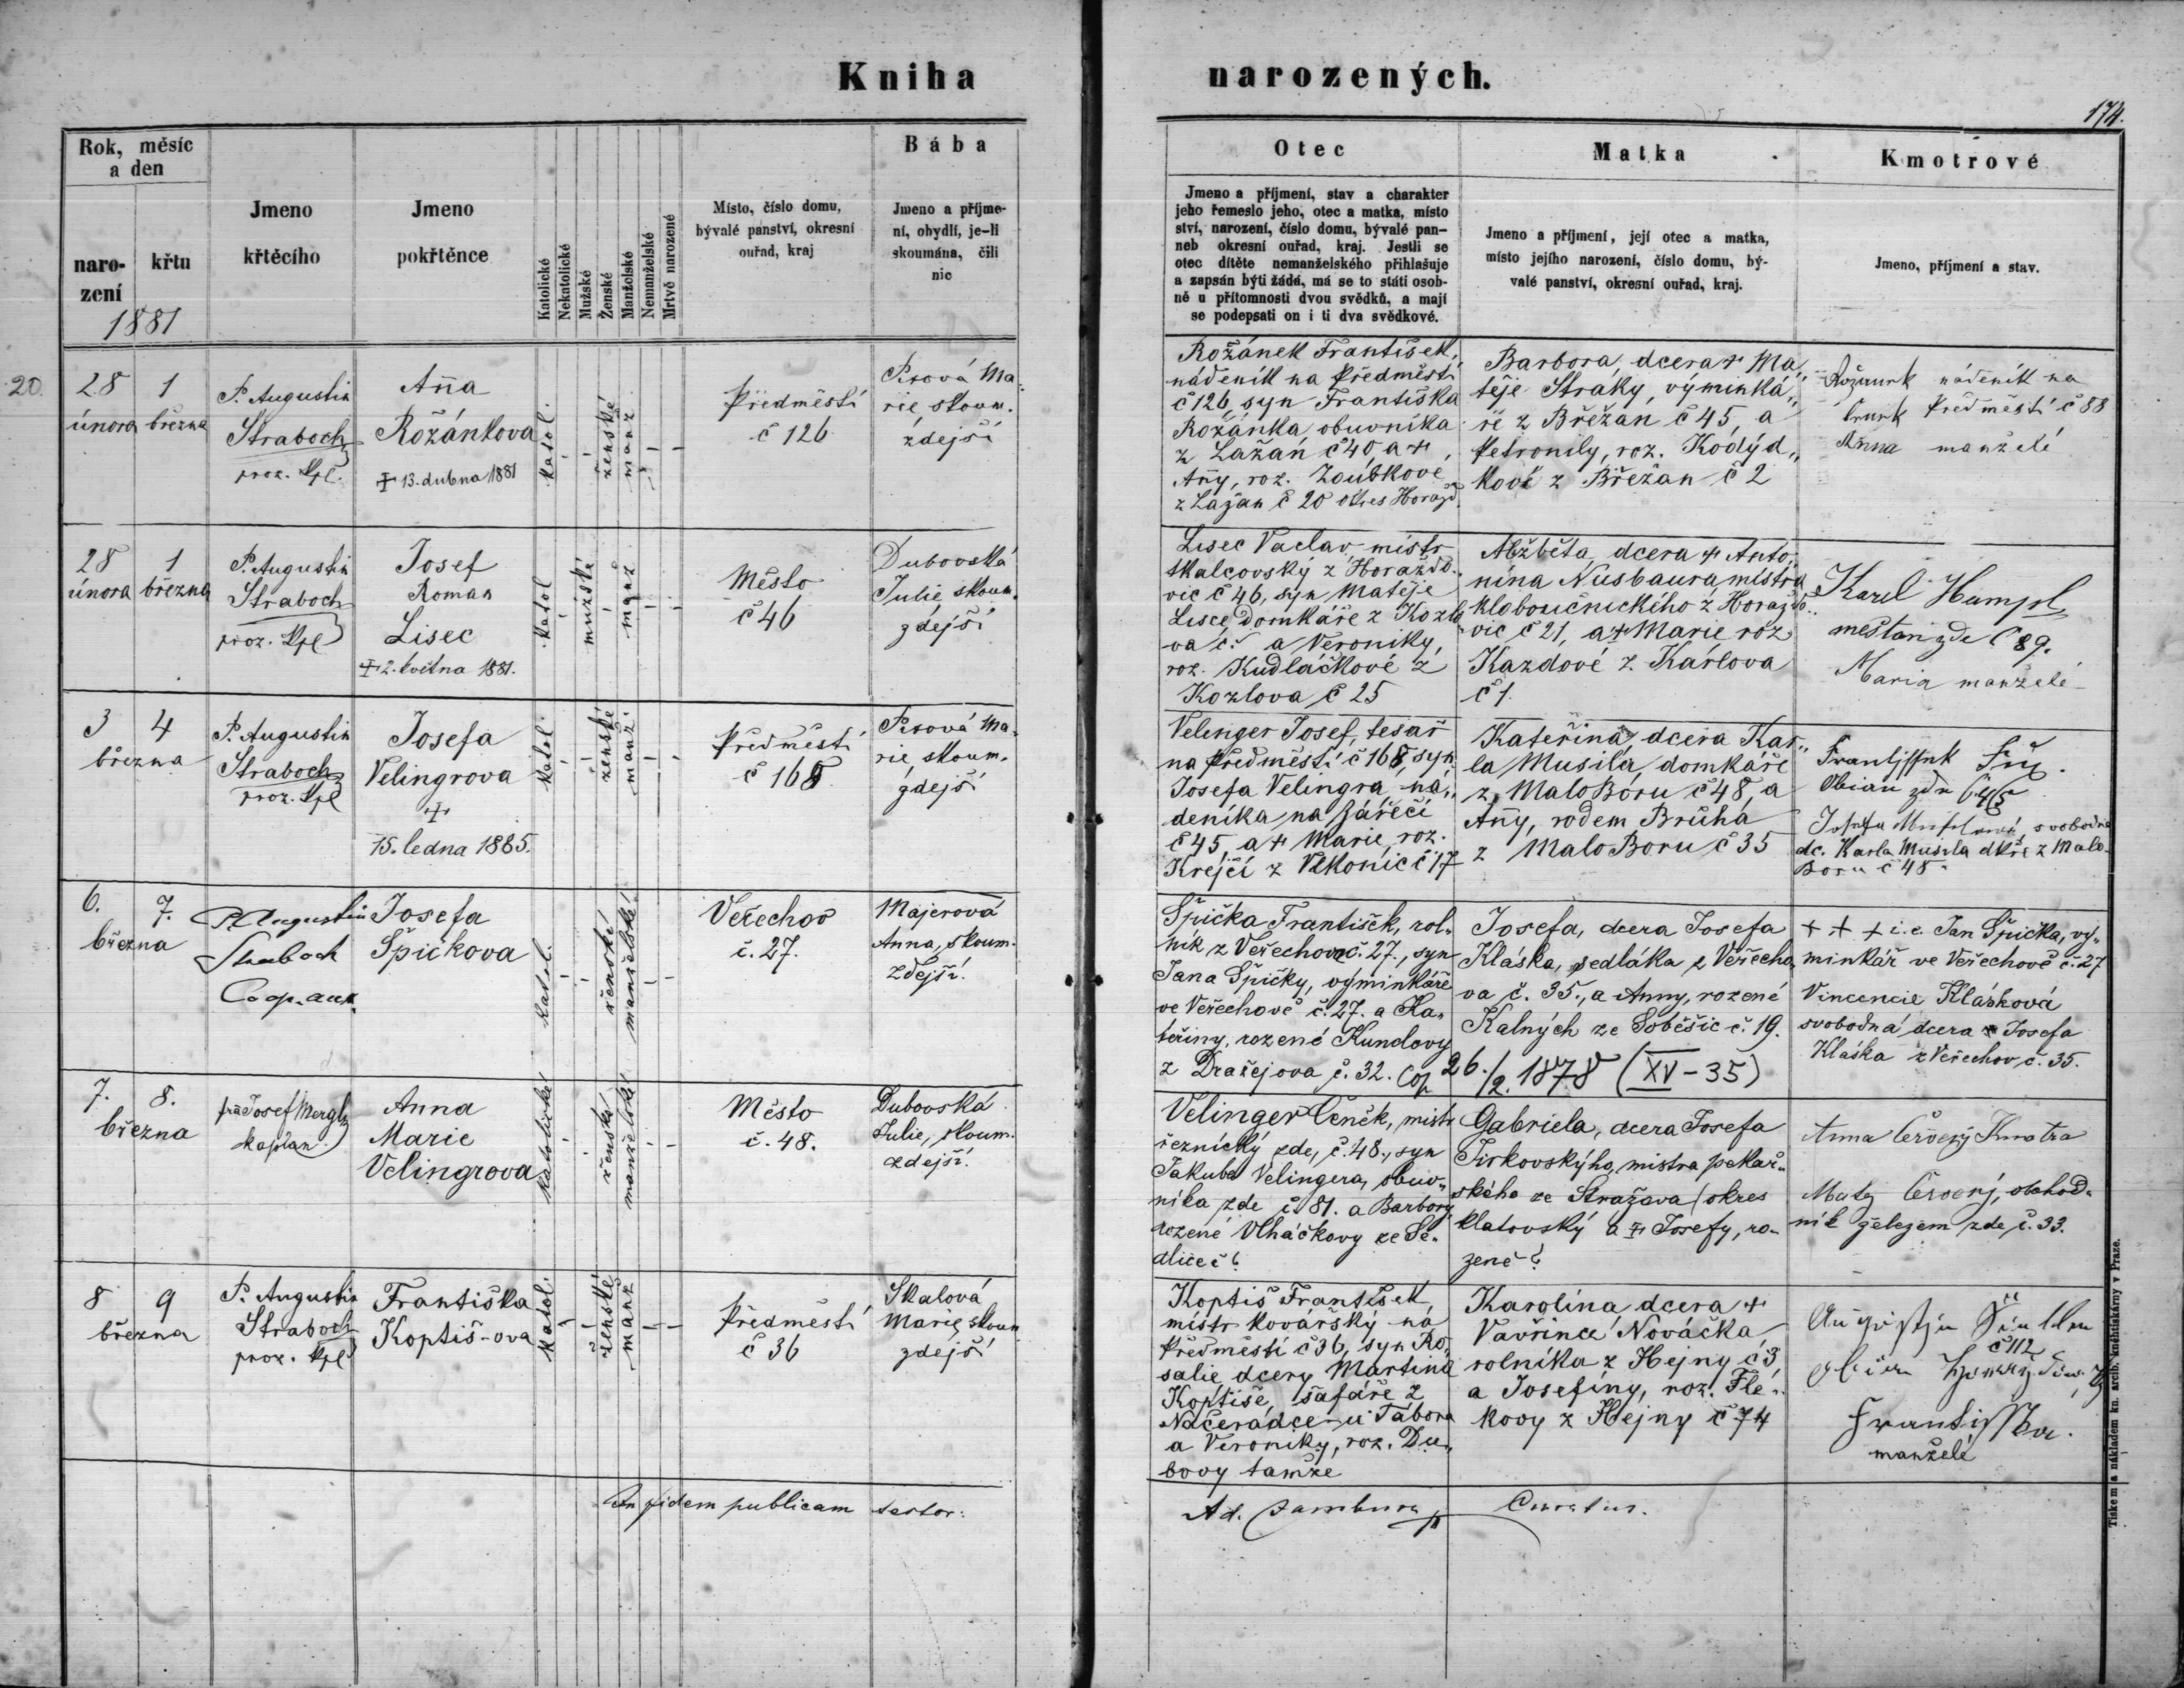 Kniha narozených.
174.
Rok, měsíc
a den
naro-
zení
křtu
1881
Jmeno
křtěcího
Jmeno
pokřtěnce
Katolické
Nekatolické
Mužské
Ženské
Manželské
Nemanželské
Mrtvě narozené
Místo, číslo domu,
bývalé panství, okresní
ouřad, kraj
Bába
Jmeno a příjme-
ní, obydlí, je-li
skoumána, čili
nic
Otec
Jmeno a příjmení, stav a charakter
jeho řemeslo jeho, otec a matka, místo
ství, narození, číslo domu, bývalé pan-
neb okresní ouřad, kraj. Jestli se
otec dítěte nemanželského přihlašuje
a zapsán býti žádá, má se to státi osob-
ně u přítomnosti dvou svědků, a mají
se podepsati on i ti dva svědkové.
Matka
Jmeno a příjmení, její otec a matka,
místo jejího narození, číslo domu, bý-
valé panství, okresní ouřad, kraj.
Kmotrové
Jmeno, příjmení a stav.
20.
28 1
února března
P. Augustin
Straboch
proz. Kpl.
Aña
Rožánkova
✝ 13. dubna 1881
katol.
ženské
manž
Předměstí
č 126
Pesová Ma-
rie, skoum.
zdejší
Rožánek František,
nádeník na Předměstí
č 126, syn Františka
Rožánka obuvníka
z Lažan č 40, a ✝
Añy, roz. Zoubkove
z Lažan č 20 okres Horažď.
Barbora, dcera ✝ Ma„
těje Straky, výminká„
ře z Břežan č 45, a
Petronily, roz. Kodýd„
kové z Břežan č 2
nádeník na
Předměstí č 88
Anna manželé
28 1
února března
P. Augustin
Straboch
proz. Kpl
Josef
Roman
Lisec
✝ 2. května 1881.
katol
mužské
manž
Město
č 46
Dubovská
Julie skoum.
zdejší
Lisec Vaclav mistr
tkalcovský z Horažďo„
vic č 46, syn Matěje
Lisce, domkáře z Kozlo
va č. a Veroniky,
roz. Kudláčkové z
Kozlova č 25
Alžběta, dcera ✝ Anto„
nína Nusbaura mistra
kloboučnického z Horažďo„
vic č 21, a ✝ Marie roz
Kazdové z Karlova
č 1.
Karel Humpl
mešťan zde č 89.
Maria manželé
3 4
března
P. Augustin
Straboch
proz. Kpl
Josefa
Velingrova
✝
15. ledna 1885.
katol.
ženské
manž.
Předměstí
č 168
Pesová Ma-
rie, skoum.
zdejší
Velinger Josef, tesař
na Předměstí č 168, syn
Josefa Velingra, ná„
deníka na Zářečí
č 45, a ✝ Marie, roz.
Krejčí z Velkonic č 17
Kateřina, dcera Kar„
la Musila, domkáře
z MaloBoru č 48, a
Añy, rodem Brůhá
z MaloBoru č 35
svobodna
dc. Karla Musila dkře z Malo-
Boru č 48.
6. 7.
března
P. Augustin
Straboch
Coop. aux.
Josefa
Špičkova
katol.
ženské
manželské
Veřechov
č. 27.
Majerová
Anna, skoum.
zdejší.
Špička František, rol„
ník z Veřechova č. 27., syn
Jana Špičky, výminkáře
ve Veřechově č. 27. a Ka„
teřiny, rozené Kundovy
z Dražejova, č. 32. Cop 26./2. 1878 (XV-35)
Josefa, dcera Josefa
Kláska, sedláka z Veřecho„
va č. 35., a Anny, rozené
Kalných ze Soběšic č. 19.
✝ ✝ ✝ i.e. Jan Špička, vý„
minkář ve Veřechově č. 27
Vincencie Klásková
svobodná dcera Josefa
Kláska z Veřechov, č. 35.
7. 8.
března
Josef Mergl
kaplan
Anna
Marie
Velingrova
katolické
ženské
manželské
Město
č. 48.
Dubovská
Julie, skoum.
zdejší.
Velinger Čeněk, mistr
řeznický zde, č. 48., syn
Jakuba Velingera, obuv„
níka zde č. 81. a Barbory
rozené Vlháčkovy ze Se-
dlice č?
Gabriela, dcera Josefa
Jirkovskýho, mistra pekař„
ského ze Stražova (okres
klatovský a ✝ Josefy, ro-
zené?
Anna Červený Kmotra
Matěj Červený, obchod-
ník železem zde č. 33.
8 9
března
P. Augustin
Straboch
proz. Kpl
Františka
Koptiš-ova
katol.
ženské
manž
Předměstí
č 36
Skalová
Marie, skoum
zdejší
Koptiš František,
mistr kovářský na
Předměstí č 36, syn Ro„
salie, dcery Martina
Koptiše, šafáře z
Načerádce u Tábora
a Veroniky, roz. Du„
bovy tamže
Karolína dcera ✝
Vavřince Nováčka,
rolníka z Hejny č 3,
a Josefíny, roz. Fle„
kovy z Hejny č 74
č 112
Františka
manželé
In fidem publicam testor:
Ad. Jambura
Curatus.
Tiskem a nákladem kn. arcib. knihtiskárny v Praze.